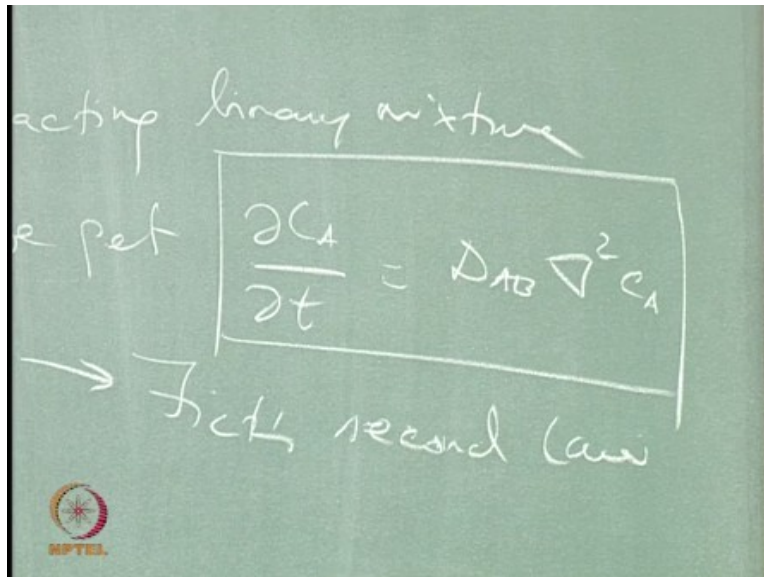 acting binary mixture
e get ∂C_A/∂t = D_AB ∇² C_A
→ Fick's second law
NPTEL